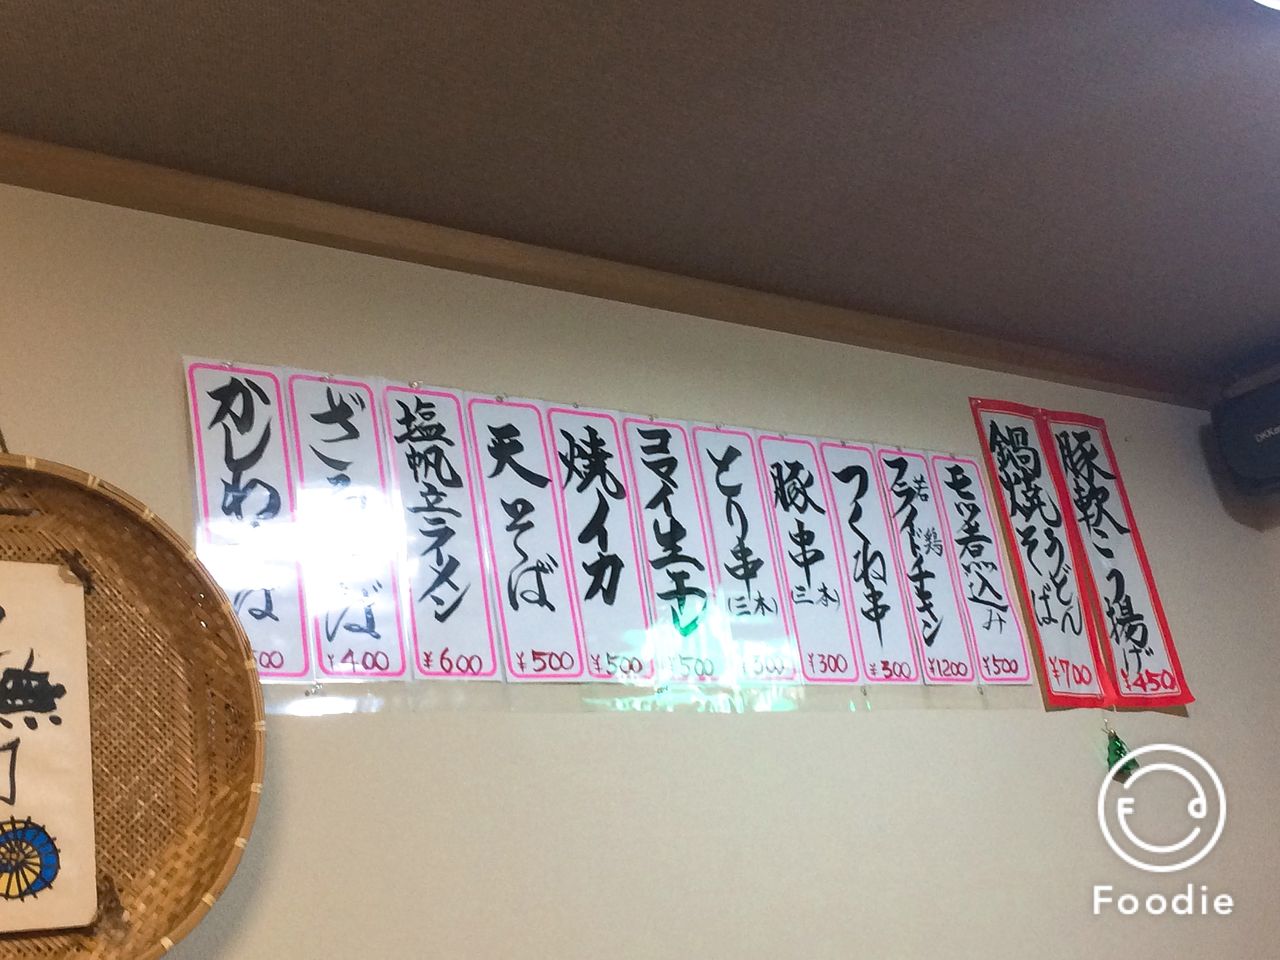 豚軟こつ揚げ
¥450
鍋焼うどん
そば
¥700
モツ煮込み
¥500
若鶏
フライドチキン
¥1200
つくね串
¥300
豚串
(三本)
¥300
とり串
(三本)
¥300
コマイ生干し
¥500
焼イカ
¥500
天そば
¥500
塩帆立ラーメン
¥600
ざるそば
¥400
かしわそば
無
Foodie